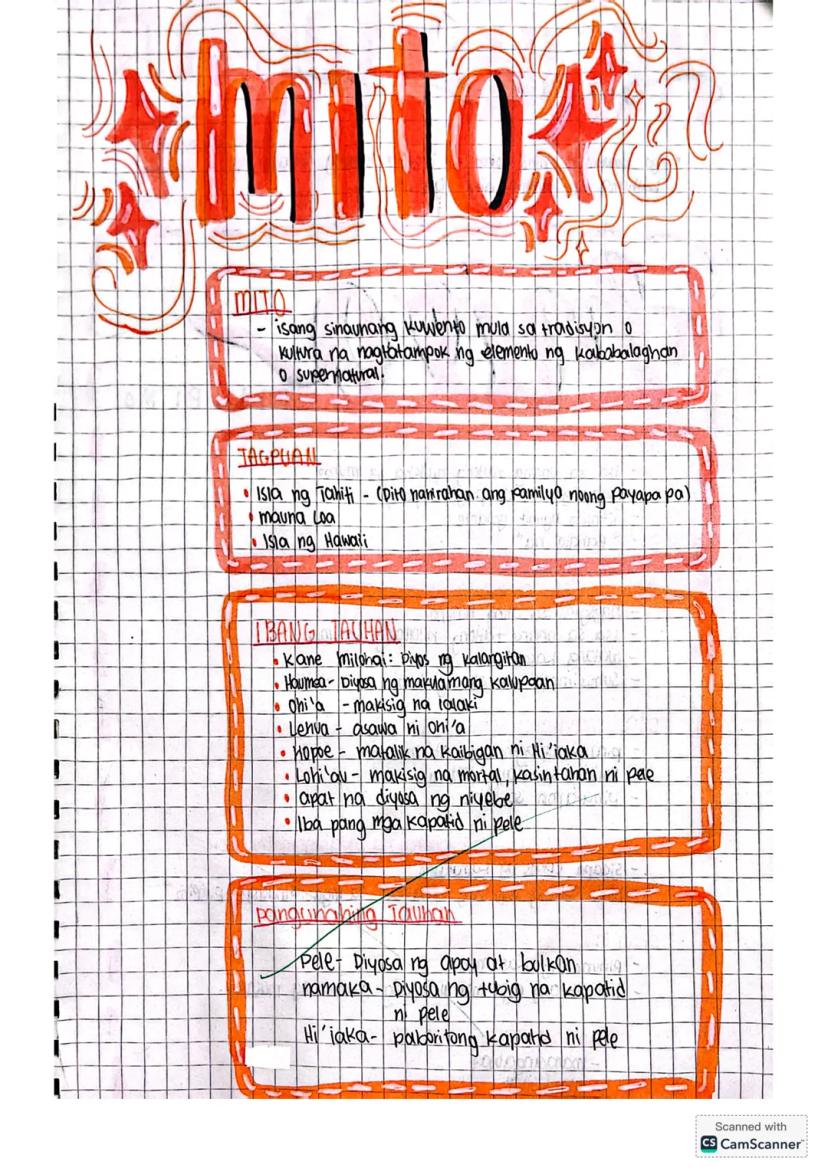 mito
MITO
- isang sinaunang kuwento mula sa tradisyon o
kultura na nagtatampok ng elemento ng kababalaghan
o supernatural.
TAGPUAN
• Isla ng Tahiti - (Dito nanirahan ang pamilya noong payapa pa)
• mauna Loa
• Isla ng Hawaii
IBANG TAUHAN
• Kane Milohai: Diyos ng kalangitan
• Haumea- Diyosa ng makulamang kalupaan
• Ohi'a - makisig na lalaki
• Lehua - asawa ni Ohi'a
• Hopoe - matalik na kaibigan ni Hi'iaka
• Lohi'au - makisig na mortal, kasintahan ni pele
• apat na diyosa ng niyebe
• Iba pang mga kapatid ni pele
pangunahing Tauhan
Pele- Diyosa ng apoy at bulkan
namaka- Diyosa ng tubig na kapatid
ni pele
Hi'iaka- paboritong kapatid ni pele
Scanned with
CS CamScanner